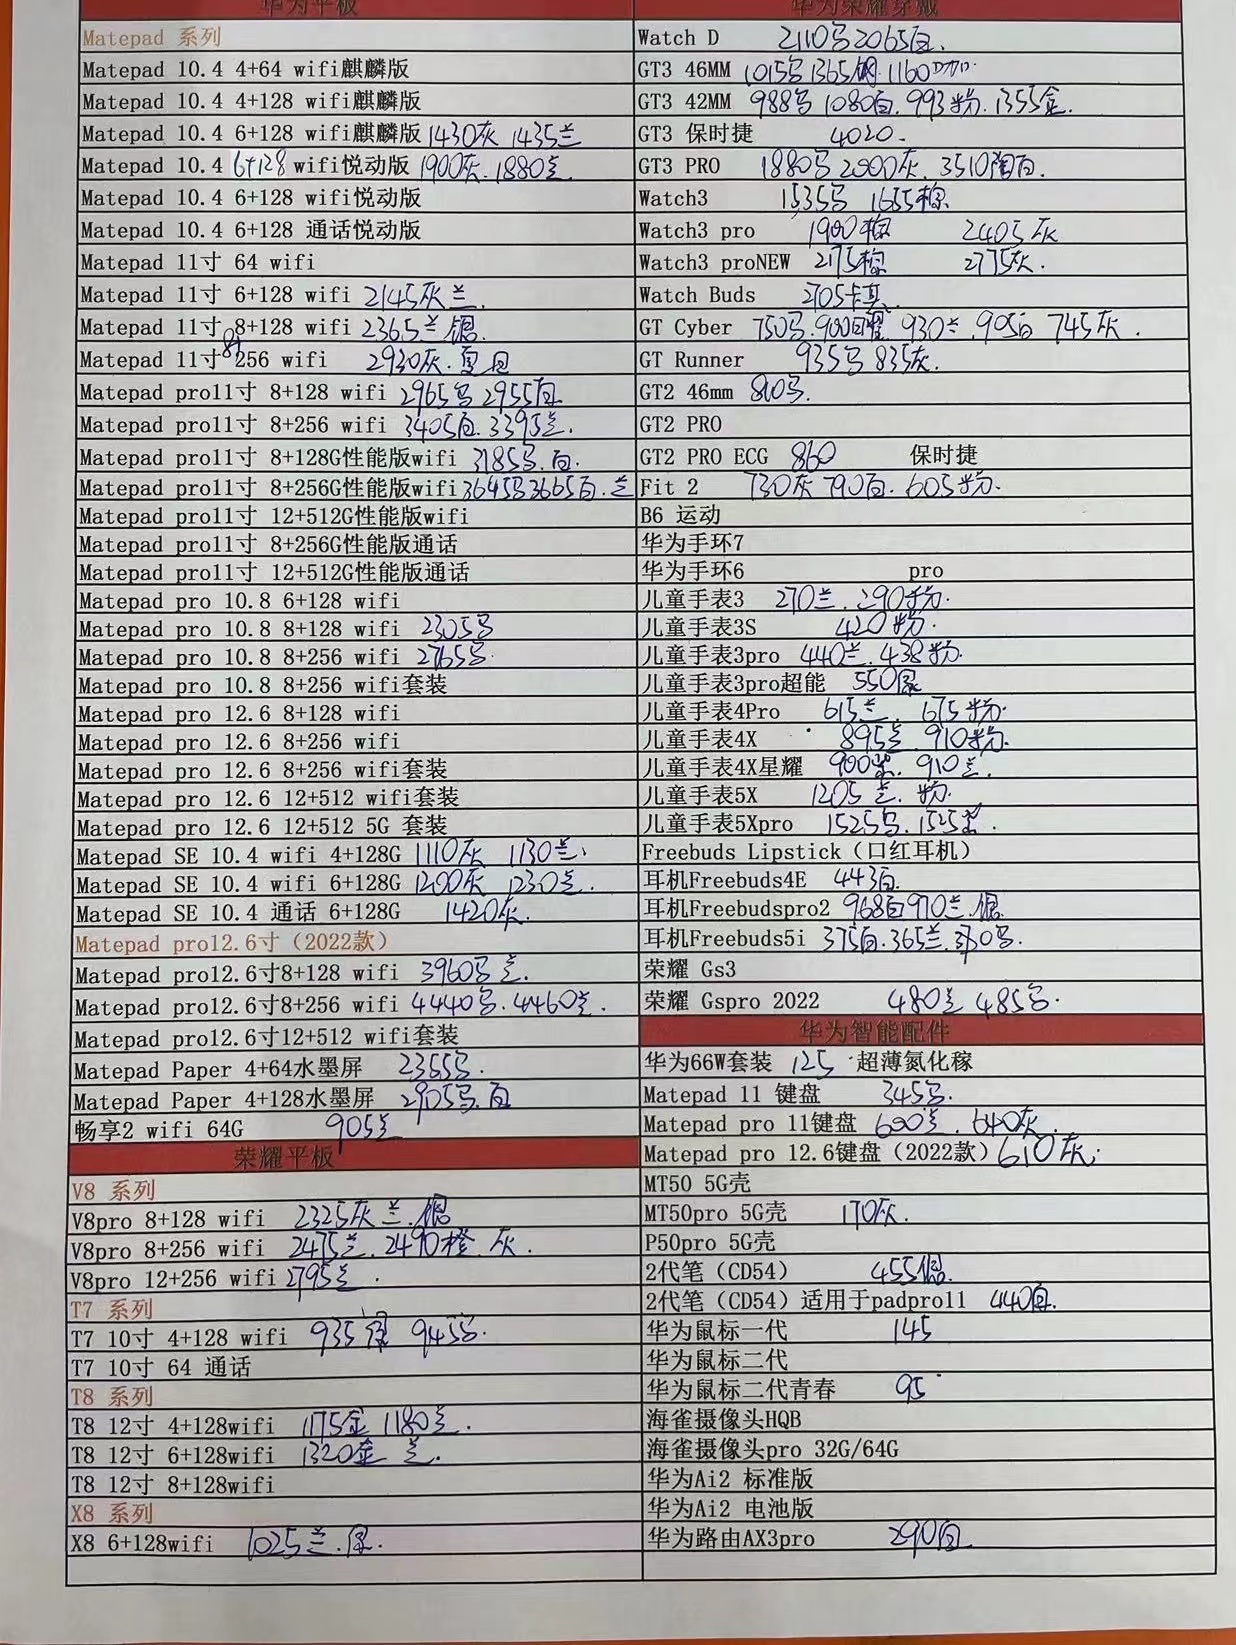 华为平板
Matepad 系列
Matepad 10.4 4+64 wifi麒麟版
Matepad 10.4 4+128 wifi麒麟版
Matepad 10.4 6+128 wifi麒麟版 1430灰 1435兰
Matepad 10.4 6+128 wifi悦动版 1900灰.1880兰.
Matepad 10.4 6+128 wifi悦动版
Matepad 10.4 6+128 通话悦动版
Matepad 11寸 64 wifi
Matepad 11寸 6+128 wifi 2145灰兰.
Matepad 11寸 8+128 wifi 2365兰银.
Matepad 11寸 8+256 wifi 2930灰.
Matepad pro11寸 8+128 wifi 2965 2955白
Matepad pro11寸 8+256 wifi 3405白.3395兰.
Matepad pro11寸 8+128G性能版wifi 3185.白.
Matepad pro11寸 8+256G性能版wifi 3645 3665白.兰
Matepad pro11寸 12+512G性能版wifi
Matepad pro11寸 8+256G性能版通话
Matepad pro11寸 12+512G性能版通话
Matepad pro 10.8 6+128 wifi
Matepad pro 10.8 8+128 wifi 2305
Matepad pro 10.8 8+256 wifi 2765
Matepad pro 10.8 8+256 wifi套装
Matepad pro 12.6 8+128 wifi
Matepad pro 12.6 8+256 wifi
Matepad pro 12.6 8+256 wifi套装
Matepad pro 12.6 12+512 wifi套装
Matepad pro 12.6 12+512 5G 套装
Matepad SE 10.4 wifi 4+128G 1110灰 1130兰.
Matepad SE 10.4 wifi 6+128G 1200灰 1230兰.
Matepad SE 10.4 通话 6+128G 1420灰.
Matepad pro12.6寸（2022款）
Matepad pro12.6寸8+128 wifi 3960 兰.
Matepad pro12.6寸8+256 wifi 4440.4460兰.
Matepad pro12.6寸12+512 wifi套装
Matepad Paper 4+64水墨屏
Matepad Paper 4+128水墨屏 2905.白
畅享2 wifi 64G 905兰
荣耀平板
V8 系列
V8pro 8+128 wifi 2325灰兰.银
V8pro 8+256 wifi 2475兰.2490橙.灰.
V8pro 12+256 wifi 2795兰.
T7 系列
T7 10寸 4+128 wifi 935 945
T7 10寸 64 通话
T8 系列
T8 12寸 4+128wifi 1175金 1180兰.
T8 12寸 6+128wifi 1320金 兰.
T8 12寸 8+128wifi
X8 系列
X8 6+128wifi 1025兰.
华为荣耀穿戴
Watch D 2110 2065白.
GT3 46MM 1015 1365钢 1160
GT3 42MM 988 1080白.993粉.1355金.
GT3 保时捷 4020
GT3 PRO 1880 2000灰.3510陶白.
Watch3 1535 1655棕.
Watch3 pro 1900棕 2405灰
Watch3 proNEW 2175棕 2775灰.
Watch Buds 2705
GT Cyber 750.900曜.930兰.905白 745灰.
GT Runner 935 835灰.
GT2 46mm 810
GT2 PRO
GT2 PRO ECG 860 保时捷
Fit 2 730灰 790白.605粉.
B6 运动
华为手环7
华为手环6 pro
儿童手表3 270兰.290粉.
儿童手表3S 420粉.
儿童手表3pro 440兰.438粉.
儿童手表3pro超能 550
儿童手表4Pro 615兰.675粉.
儿童手表4X 895兰.910粉.
儿童手表4X星耀 900紫.910兰.
儿童手表5X 1205兰.粉.
儿童手表5Xpro 1525.1525
Freebuds Lipstick（口红耳机）
耳机Freebuds4E 443白.
耳机Freebudspro2 968白910兰.银
耳机Freebuds5i 375白.365兰.
荣耀 Gs3
荣耀 Gspro 2022 480兰 485
华为智能配件
华为66W套装 125 超薄氮化稼
Matepad 11 键盘 345
Matepad pro 11键盘 600兰.640灰.
Matepad pro 12.6键盘（2022款）610灰.
MT50 5G壳
MT50pro 5G壳 170灰.
P50pro 5G壳
2代笔（CD54） 455银.
2代笔（CD54）适用于padpro11 440白.
华为鼠标一代 145
华为鼠标二代
华为鼠标二代青春 95
海雀摄像头HQB
海雀摄像头pro 32G/64G
华为Ai2 标准版
华为Ai2 电池版
华为路由AX3pro 290白